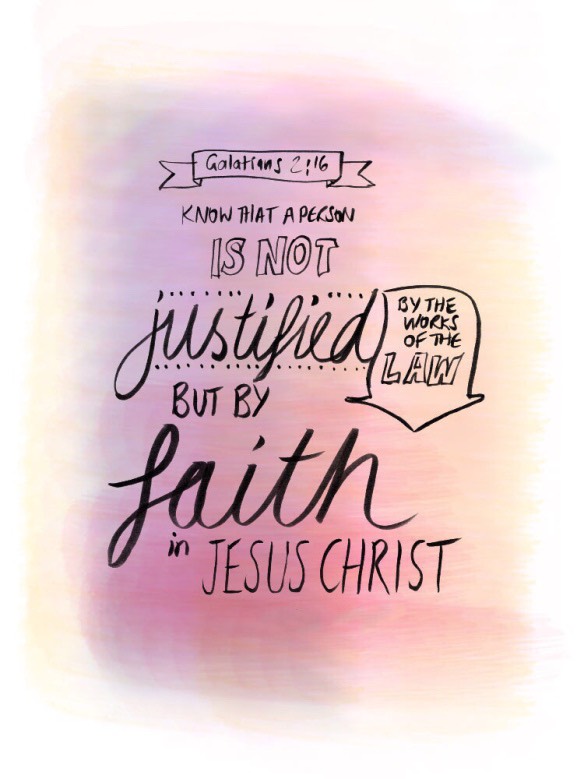 Galatians 2:16
KNOW THAT A PERSON
IS NOT
justified
BY THE
WORKS
OF THE
LAW
BUT BY
faith
in JESUS CHRIST